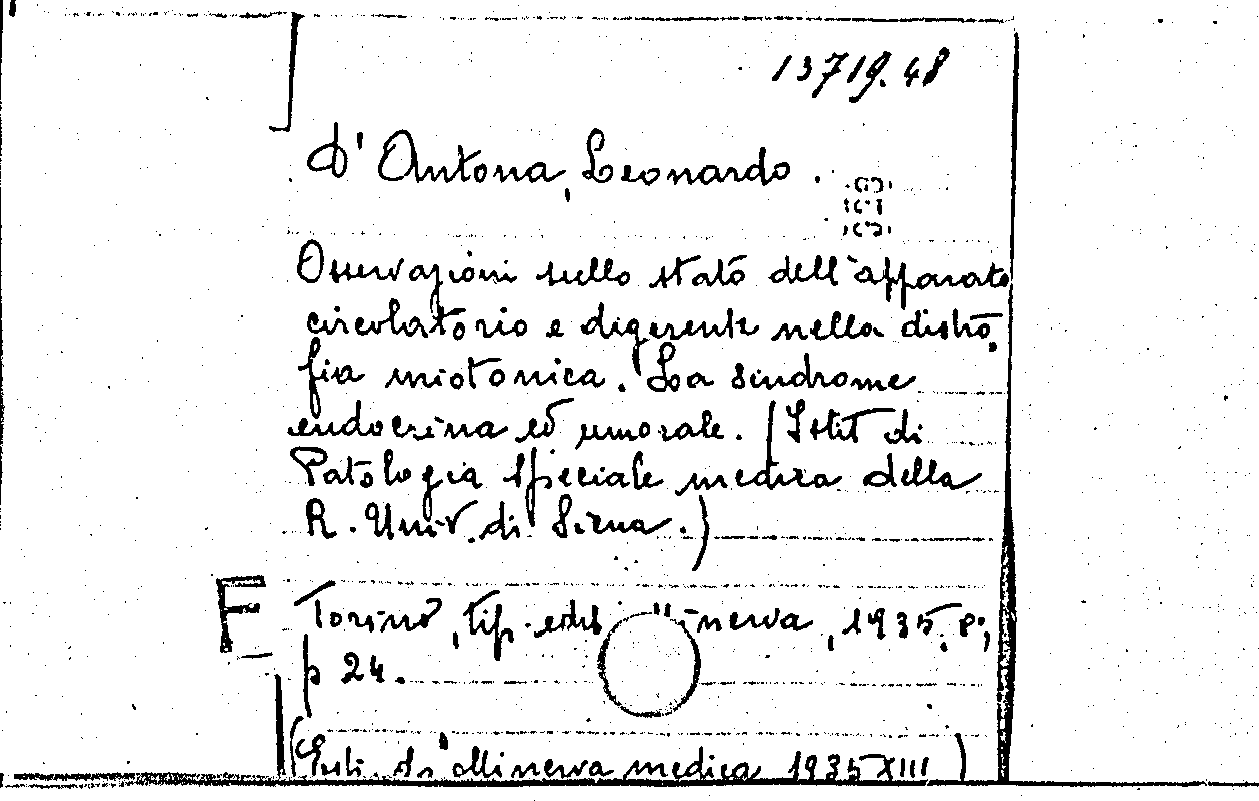 13719.48
D'Antona, Leonardo.
Osservazioni sullo stato dell'apparato
circolatorio e digerente nella distro,
fia miotonica. La sindrome
endocrina ed umorale. (Istit di
Patologia speciale medica della
R. Univ. di Siena.)
F Torino, tip. edit Minerva, 1935. 8°,
p 24.
(Estr. da "Minerva medica 1935 XIII)